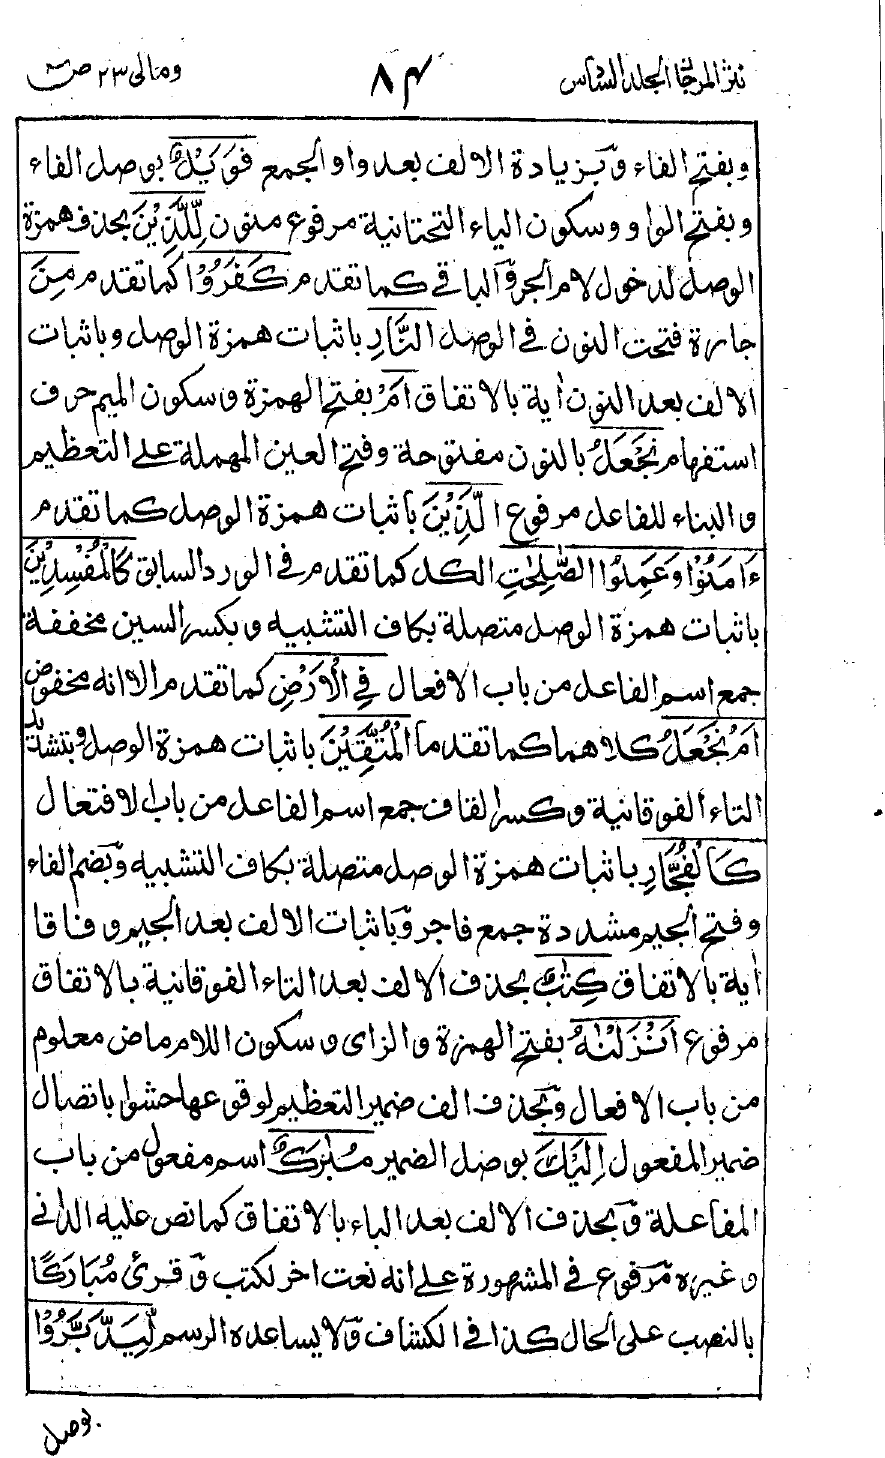 نثر المرجان المجلد السادس
٨٤
ومالى ٢٣ ص
وبفتح الفاء وبزيادة الالف بعد واو الجمع فَوَيْلٌ بوصل الفاء
وبفتح الواو وسكون الياء التحتانية مرفوع منون لِّلَّذِيْنَ بحذف همزة
الوصل لدخول لام الجر والباقي كما تقدم كَفَرُوْا كما تقدم مِنَ
جارة فتحت النون في الوصل النَّارِ باثبات همزة الوصل وباثبات
الالف بعد النون اٰية بالاتفاق اَمْ بفتح الهمزة وسكون الميم حرف
استفهام نَجْعَلُ بالنون مفتوحة وفتح العين المهملة على التعظيم
والبناء للفاعل مرفوع الَّذِيْنَ باثبات همزة الوصل كما تقدم
ءَامَنُوْا وَعَمِلُوا الصّٰلِحٰتِ الكل كما تقدم في الورد السابق كَالْمُفْسِدِيْنَ
باثبات همزة الوصل متصلة بكاف التشبيه وبكسر السين مخففة
جمع اسم الفاعل من باب الافعال فِي الْاَرْضِ كما تقدم الا انه مخفوض
اَمْ نَجْعَلُ كلاهما كما تقدما الْمُتَّقِيْنَ باثبات همزة الوصل وبتشديد
التاء الفوقانية وكسر القاف جمع اسم الفاعل من باب الافتعال
كَالْفُجَّارِ باثبات همزة الوصل متصلة بكاف التشبيه وبضم الفاء
وفتح الجيم مشددة جمع فاجر وباثبات الالف بعد الجيم وفاقا
اٰية بالاتفاق كِتٰبٌ بحذف الالف بعد التاء الفوقانية بالاتفاق
مرفوع اَنْزَلْنٰهُ بفتح الهمزة والزاى وسكون اللام ماض معلوم
من باب الافعال وبحذف الف ضمير التعظيم لوقوعها حشوا باتصال
ضمير المفعول اِلَيْكَ بوصل الضمير مُبٰرَكٌ اسم مفعول من باب
المفاعلة وبحذف الالف بعد الباء بالاتفاق كما نص عليه الدانى
وغيره مرفوع في المشهورة على انه نعت اخر لكتب وقرئ مُبَارَكًا
بالنصب على الحال كذا في الكشاف ولا يساعده الرسم لِّيَدَّبَّرُوْا
بوصل